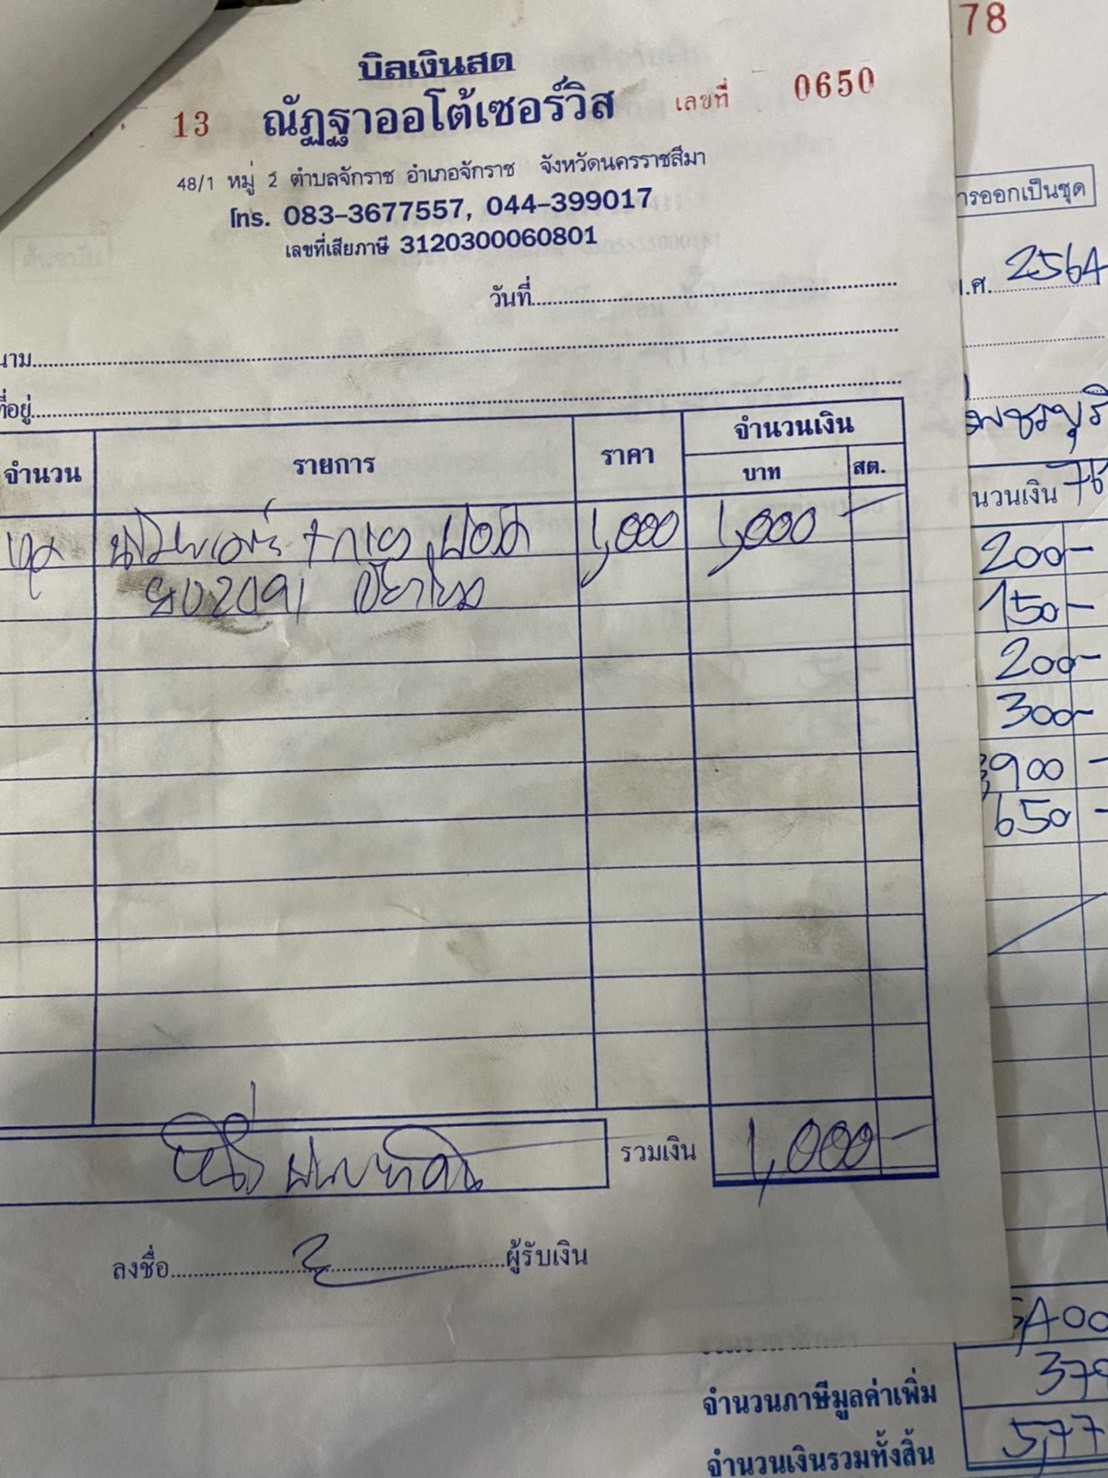 บิลเงินสด
13 ณัฏฐาออโต้เซอร์วิส เลขที่ 0650
48/1 หมู่ 2 ตำบลจักราช อำเภอจักราช จังหวัดนครราชสีมา
โทร. 083-3677557, 044-399017
เลขที่เสียภาษี 3120300060801
วันที่
นาม
ที่อยู่
จำนวน รายการ ราคา จำนวนเงิน
บาท สต.
1,000 1,000 -
รวมเงิน 1,000 -
ลงชื่อ ผู้รับเงิน
78
ารออกเป็นชุด
พ.ศ. 2564
เพชรบุรี
นวนเงิน
200-
150-
200-
300-
3,900 -
650 -
5,400
จำนวนภาษีมูลค่าเพิ่ม
จำนวนเงินรวมทั้งสิ้น 5,77